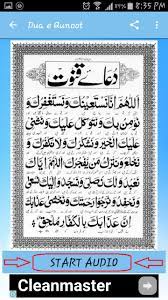 8:35 PM
Dua e Qunoot
دعائے قنوت
اَللّٰهُمَّ اِنَّا نَسْتَعِيْنُكَ وَنَسْتَغْفِرُكَ وَ
نُؤْمِنُ بِكَ وَنَتَوَكَّلُ عَلَيْكَ وَنُثْنِیْ
عَلَيْكَ الْخَيْرَ وَنَشْكُرُكَ وَلَا نَكْفُرُكَ
وَنَخْلَعُ وَنَتْرُكُ مَنْ يَّفْجُرُكَ اَللّٰهُمَّ اِيَّاكَ
نَعْبُدُ وَلَكَ نُصَلِّیْ وَنَسْجُدُ وَاِلَيْكَ نَسْعٰی
وَنَحْفِدُ وَنَرْجُوْا رَحْمَتَكَ وَنَخْشٰی عَذَابَكَ
اِنَّ عَذَابَكَ بِالْكُفَّارِ مُلْحِقٌ
START AUDIO
Cleanmaster